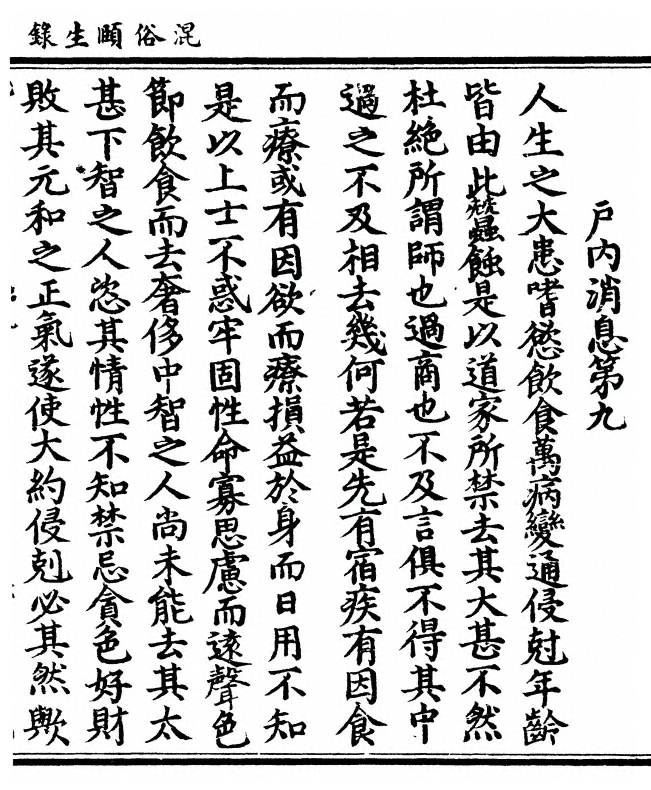 混俗頤生錄
戶內消息第九
人生之大患嗜慾飲食萬病變通侵尅年齡
皆由此蠶蝕是以道家所禁去其大甚不然
杜絕所謂師也過商也不及言俱不得其中
過之不及相去幾何若是先有宿疾有因食
而療或有因欲而療損益於身而日用不知
是以上士不惑牢固性命寡思慮而遠聲色
節飲食而去奢侈中智之人尚未能去其太
甚下智之人恣其情性不知禁忌貪色好財
敗其元和之正氣遂使大約侵剋必其然歟